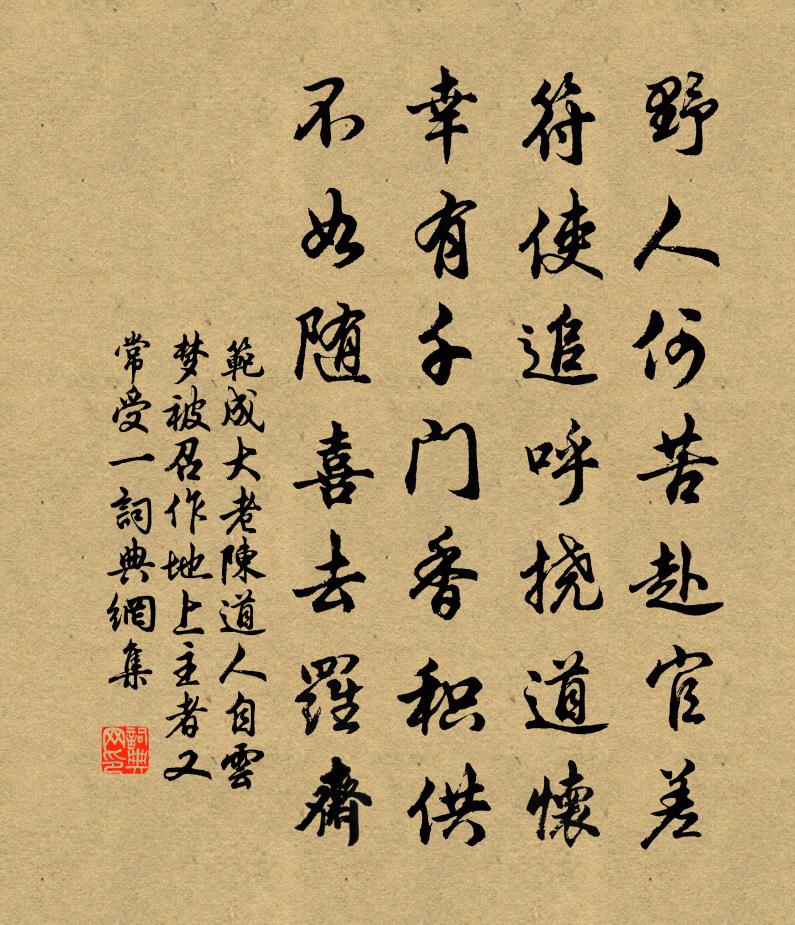 野人何苦赴官差
符使追呼挠道懷
幸有千门香积供
不如随喜去羅齋
範成大老陳道人自雲
梦被召作地上主者又
常受一詞典網集
詞典网印